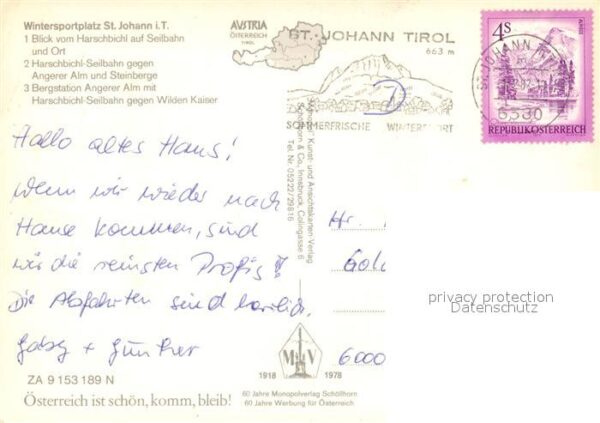 Wintersportplatz St. Johann i.T.
1 Blick vom Harschbichl auf Seilbahn
und Ort
2 Harschbichl-Seilbahn gegen
Angerer Alm und Steinberge
3 Bergstation Angerer Alm mit
Harschbichl-Seilbahn gegen Wilden Kaiser
AUSTRIA
ÖSTERREICH
TIROL
ST. JOHANN TIROL
663 m
SOMMERFRISCHE WINTERSPORT
4S
REPUBLIK ÖSTERREICH
ST. JOHANN IN
6380
Hallo altes Haus!
Wenn wir wieder nach
Hause kommen, sind
wir die reinsten Profis!
Die Abfahrten sind herrlich.
Gaby + Günther
Schöllhorn & Co., Innsbruck, Colingasse 6
Tel. Nr. 05222/29816
Hr.
Gold
6000
privacy protection
Datenschutz
M V
1918 1978
ZA 9 153 189 N
Österreich ist schön, komm, bleib!
60 Jahre Monopolverlag Schöllhorn
60 Jahre Werbung für Österreich.